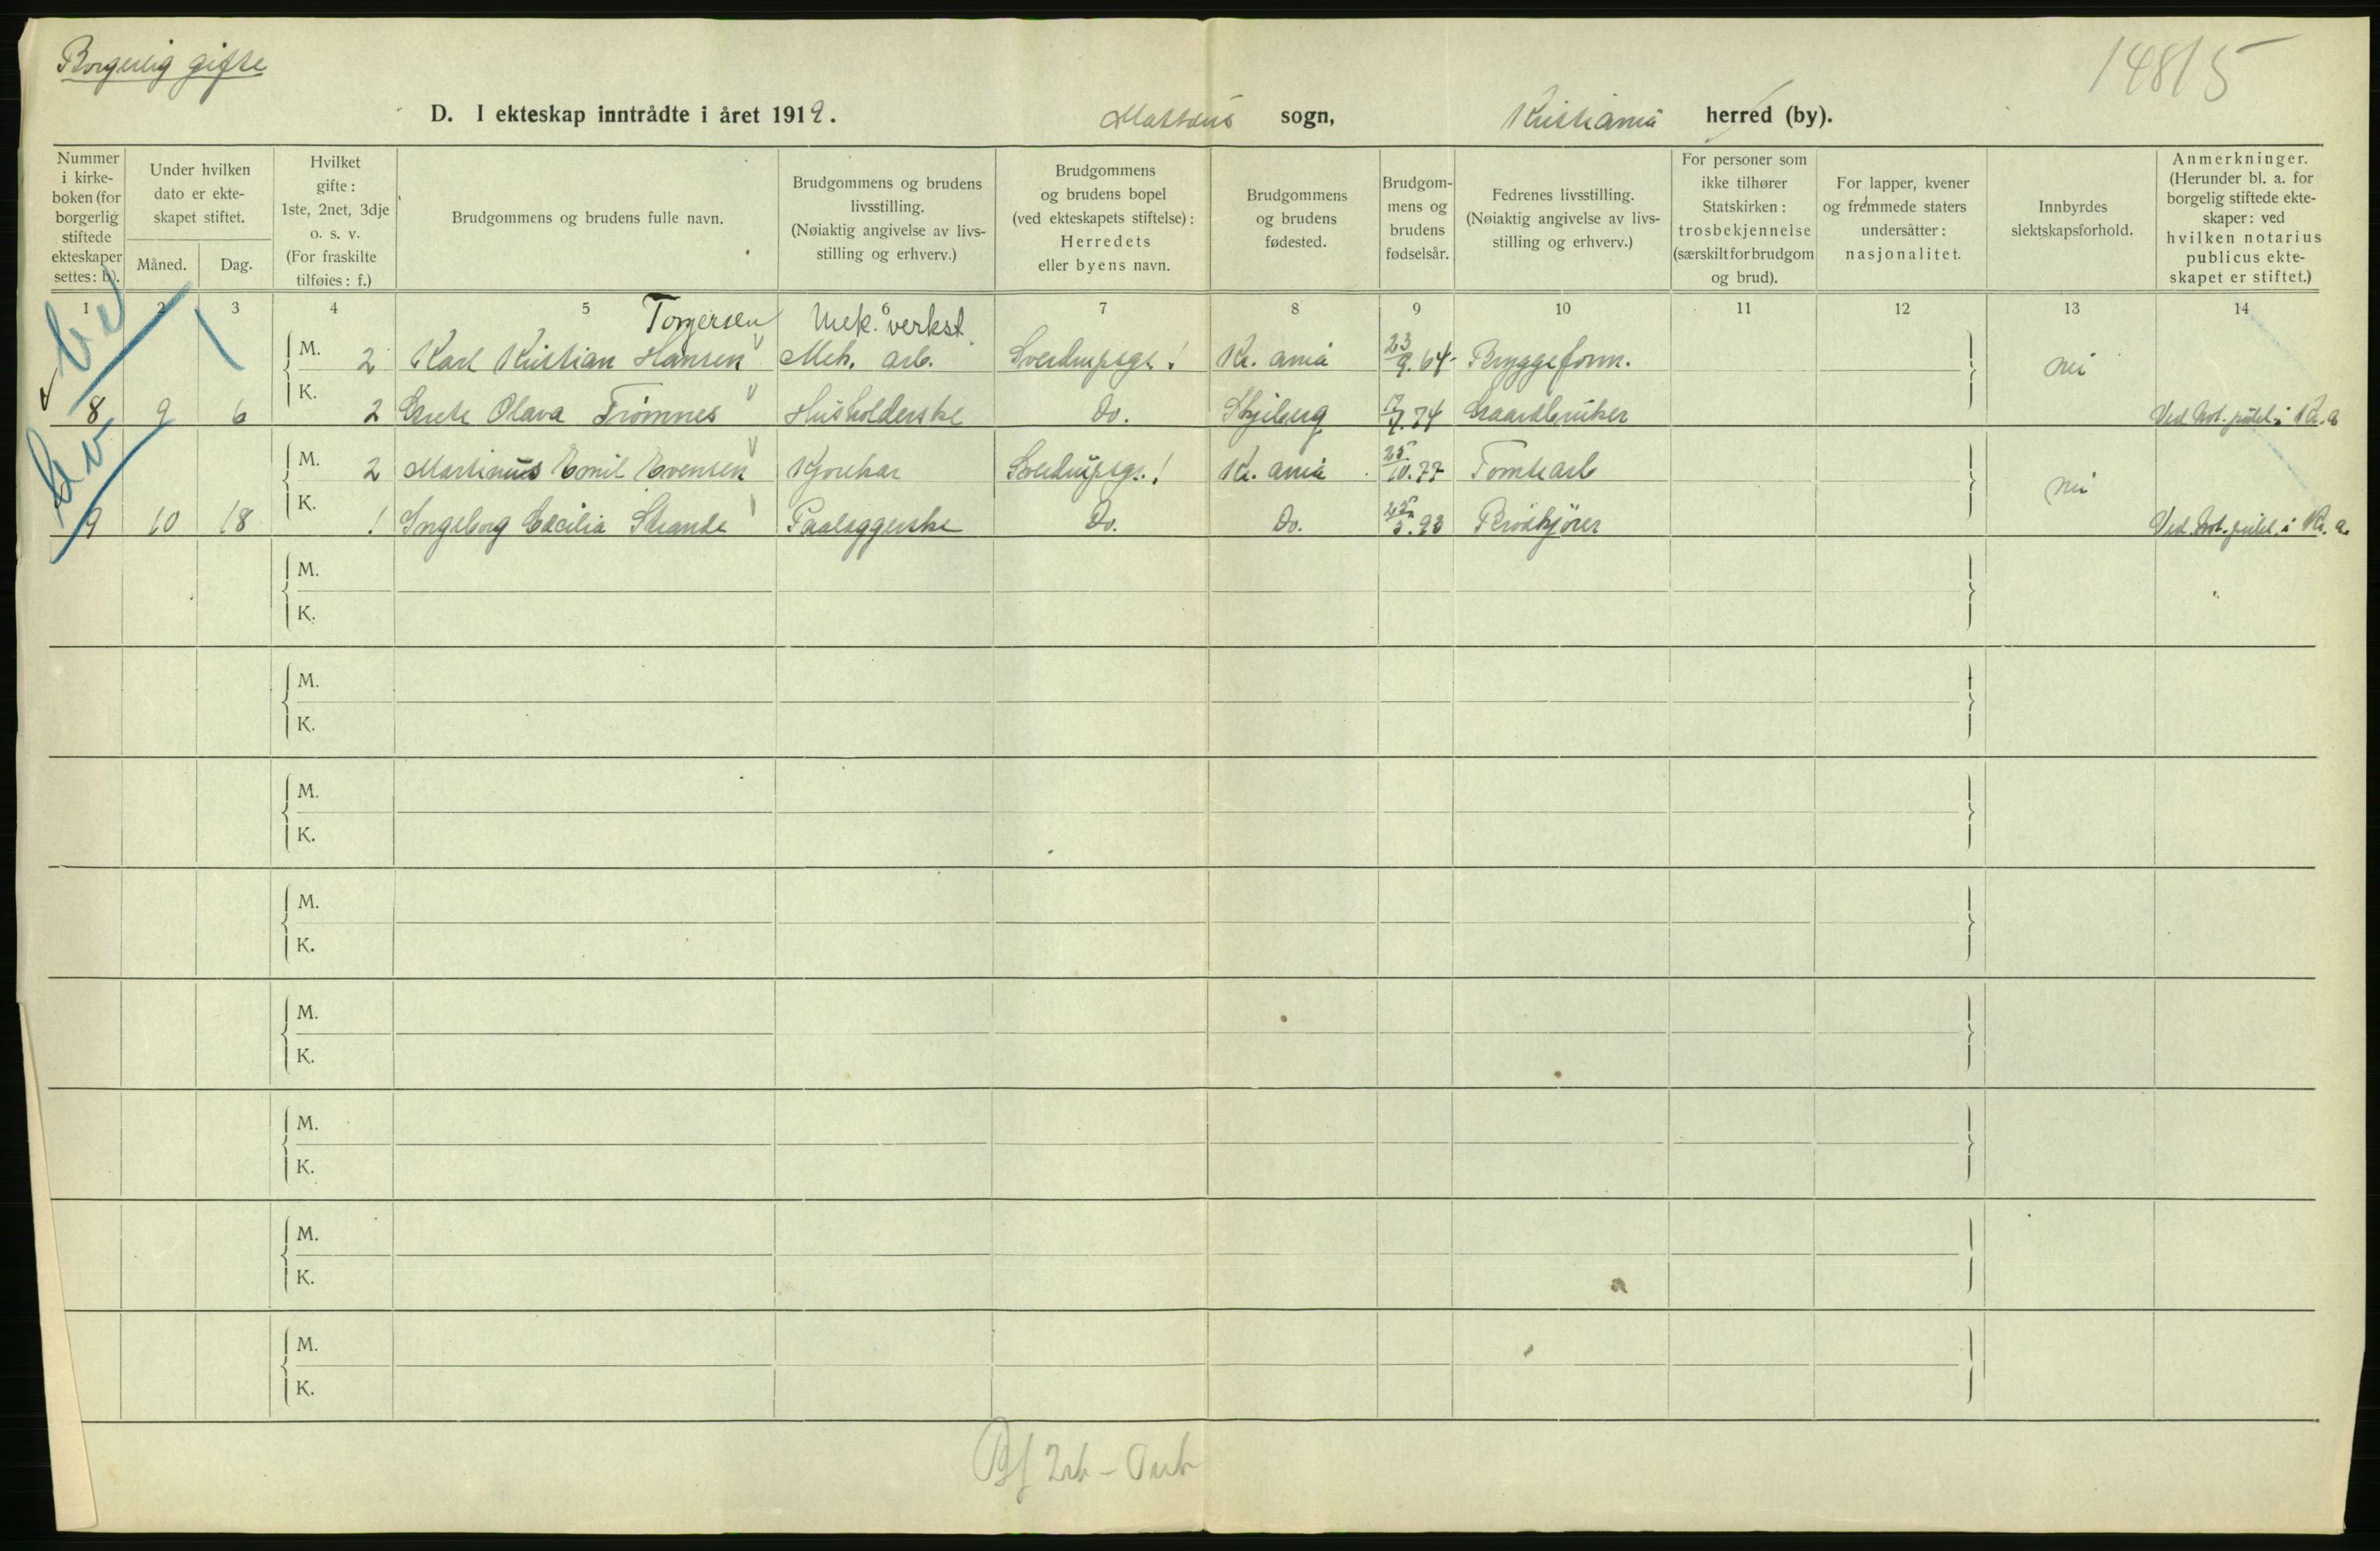 Borgerlig gifte
14815
D. I ekteskap inntrådte i året 1919. Mattæus sogn, Kristiania herred (by).
Nummer i kirke-boken (for borgerlig stiftede ekteskaper settes: b).
Under hvilken dato er ekte-skapet stiftet.
Måned. Dag.
Hvilket gifte: 1ste, 2net, 3dje o. s. v. (For fraskilte tilføies: f.)
Brudgommens og brudens fulle navn.
Brudgommens og brudens livsstilling. (Nøiaktig angivelse av livs-stilling og erhverv.)
Brudgommens og brudens bopel (ved ekteskapets stiftelse): Herredets eller byens navn.
Brudgommens og brudens fødested.
Brudgom-mens og brudens fødselsår.
Fedrenes livsstilling. (Nøiaktig angivelse av livs-stilling og erhverv.)
For personer som ikke tilhører Statskirken: trosbekjennelse (særskilt for brudgom og brud).
For lapper, kvener og fremmede staters undersåtter: nasjonalitet.
Innbyrdes slektskapsforhold.
Anmerkninger. (Herunder bl. a. for borgelig stiftede ekte-skaper: ved hvilken notarius publicus ekte-skapet er stiftet.)
1 2 3 4 5 6 7 8 9 10 11 12 13 14
Torgersen Mek. verkst.
M. 2 Karl Kristian Hansen Mek. arb. Sverdrupsgt. ! Kr. ania 23/9.64 Bryggeform. nei
8 9 6 K. 2 Grete Olava Trømnes Husholderske Do. Skjeberg 7.74 Gaardbruker Ved Not. publ. i Kr. a
M. 2 Martinus Emil Evensen Kjørekar Sverdrupsgt. ! Kr. ania 25/10.77 Tomtearb nei
9 10 18 K. 1 Ingeborg Cecilia Strande Paalæggerske Do. Do. 5.93 Brødkjører Ved Not. publ. i Kr. a
M.
K.
M.
K.
M.
K.
M.
K.
M.
K.
M.
K.
M.
K.
M.
K.